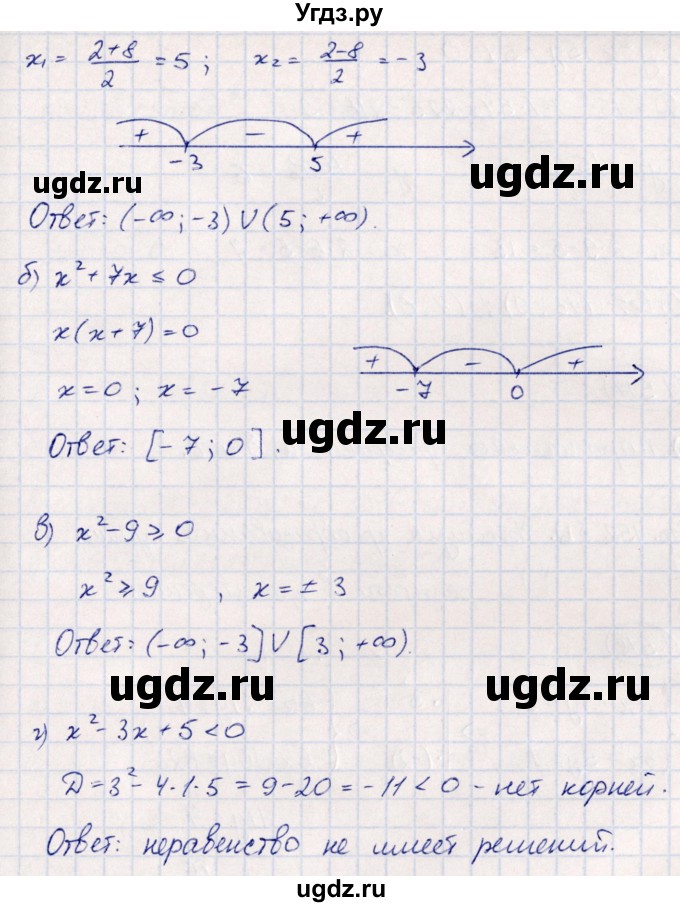 Угдз.ру
x₁ = (2+8)/2 = 5; x₂ = (2-8)/2 = -3
+ - +
-3 5
ugdz.ru ugdz.ru
Ответ: (-∞; -3) ∪ (5; +∞).
б) x² + 7x ≤ 0
x(x+7) = 0
+ - +
x = 0; x = -7
-7 0
ugdz.ru
Ответ: [-7; 0].
в) x² - 9 ≥ 0
x² ≥ 9, x = ± 3
Ответ: (-∞; -3] ∪ [3; +∞).
ugdz.ru ugdz.ru
г) x² - 3x + 5 < 0
Д = 3² - 4·1·5 = 9 - 20 = -11 < 0 - нет корней.
Ответ: неравенство не имеет решений.
ugdz.ru